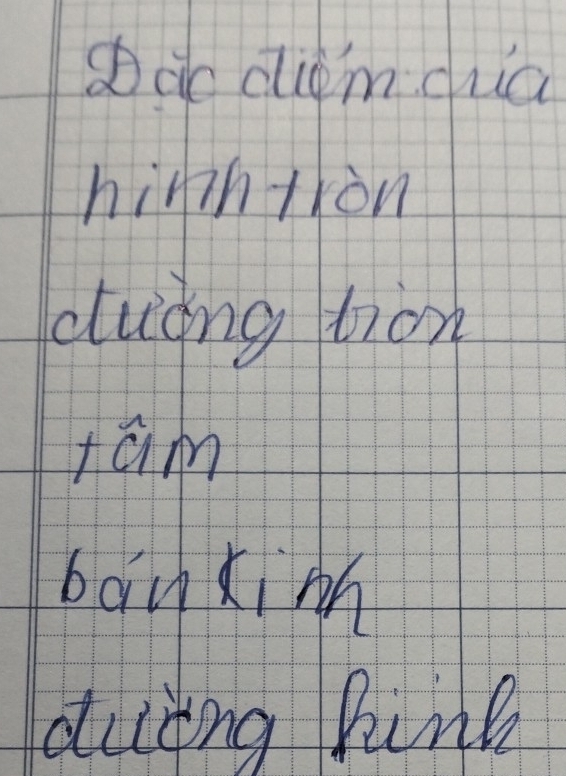 Đặc điểm của
hình tròn
đường tròn
tâm
bán kính
đường kính